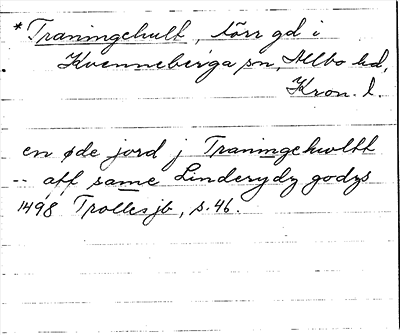 *Traningehult, förr gd i
Kvenneberga sn, Allbo hd,
Kron. l.
en øde jord j Traningehwltt
-- aff same Linderydz godzs
1498 Trolles jb, s. 46.